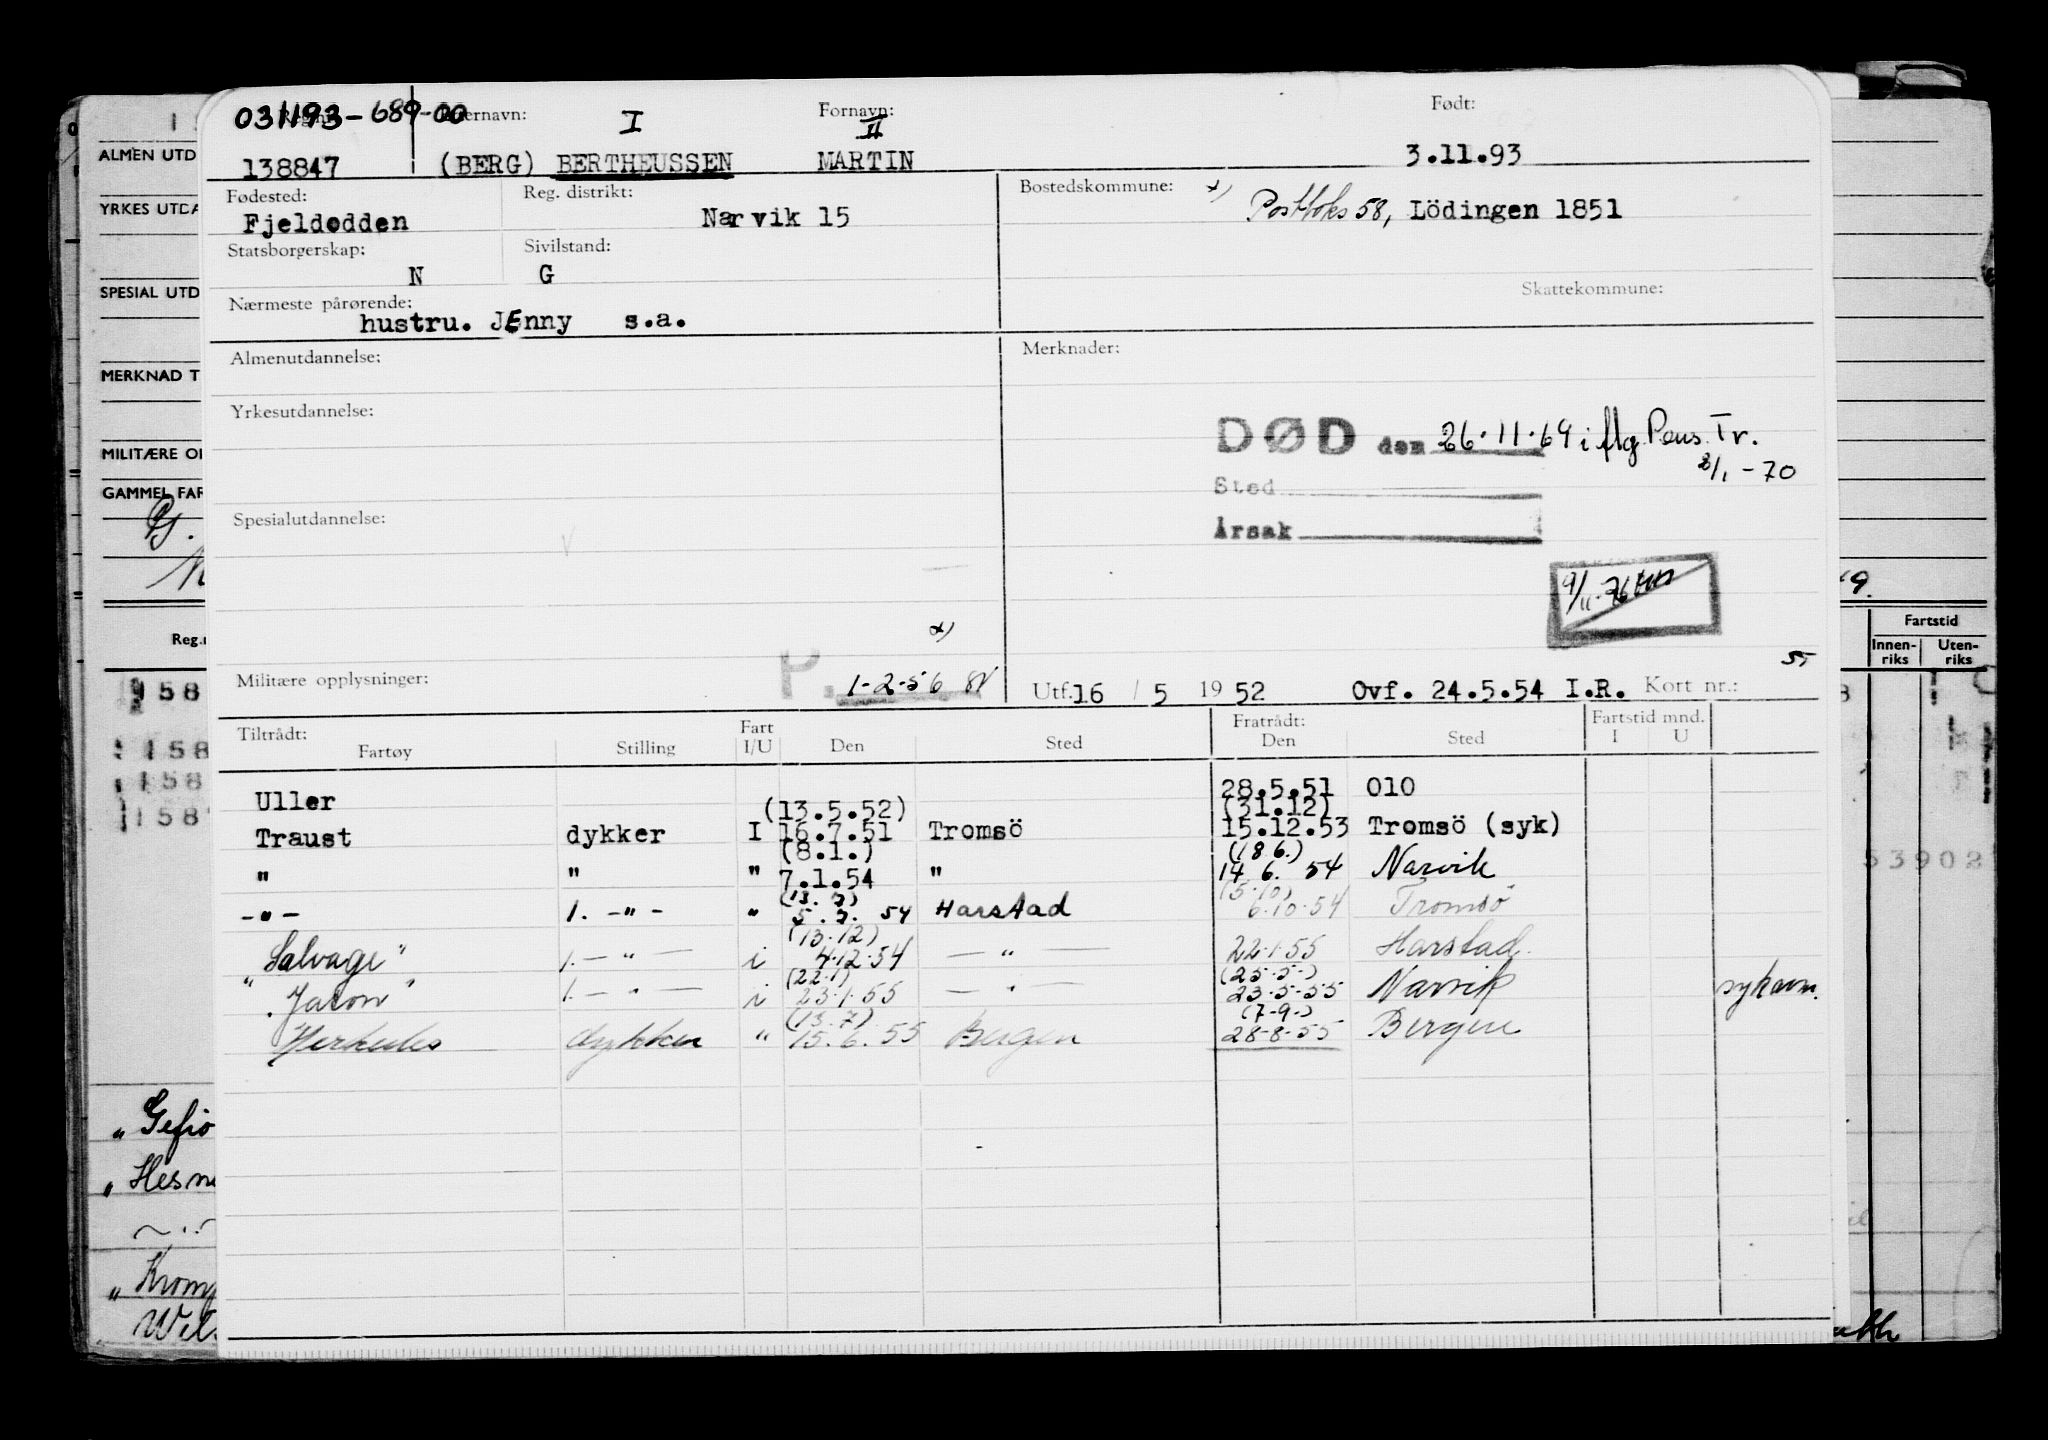 031193-689-00 Etternavn: I Fornavn: II Født:
138847 (BERG) BERTHEUSSEN MARTIN 3.11.93
Fødested: Reg. distrikt: Bostedskommune: x)
Fjeldodden Narvik 15 Postboks 58, Lödingen 1851
Statsborgerskap: Sivilstand:
N G
Nærmeste pårørende: Skattekommune:
hustru. JEnny s.a.
Almenutdannelse: Merknader:
Yrkesutdannelse:
DØD den 26.11.69 i flg. Pens. Tr.
2/1-70
Sted
Spesialutdannelse: Årsak
9/11-76
x)
Militære opplysninger: P. 1-2-56 Utf. 16 / 5 1952 Ovf. 24.5.54 I.R. Kort nr.:
Tiltrådt: Fart Fratrådt: Fartstid mnd.
Fartøy Stilling I/U Den Sted Den Sted I U
Uller 28.5.51 Olo
(13.5.52) (31.12)
Traust dykker I 16.7.51 Tromsö 15.12.53 Tromsö (syk)
(8.1.) (18.6.)
" " " 7.1.54 " 14.6.54 Narvik
(13.7) (5.10)
-"- 1. -"- " 5.7.54 Harstad 6.10.54 Tromsö
(13.12)
"Salvage" 1. -"- i 4.12.54 -"- 22.1.55 Harstad.
(22.1) (25.5.)
"Jason" 1. -"- i 23.1.55 -"- 23.5.55 Narvik sykavm.
(13.7) (7.9.)
Herkules dykker " 15.6.55 Bergen 28.8.55 Bergen
ALMEN UTD
YRKES UTDA
SPESIAL UTD
MERKNAD T
MILITÆRE O
GAMMEL FAR
Reg.
158
158
158
158
"Gefio
"Hesn
"Krom
Fartstid
Innen-riks Uten-riks
53902